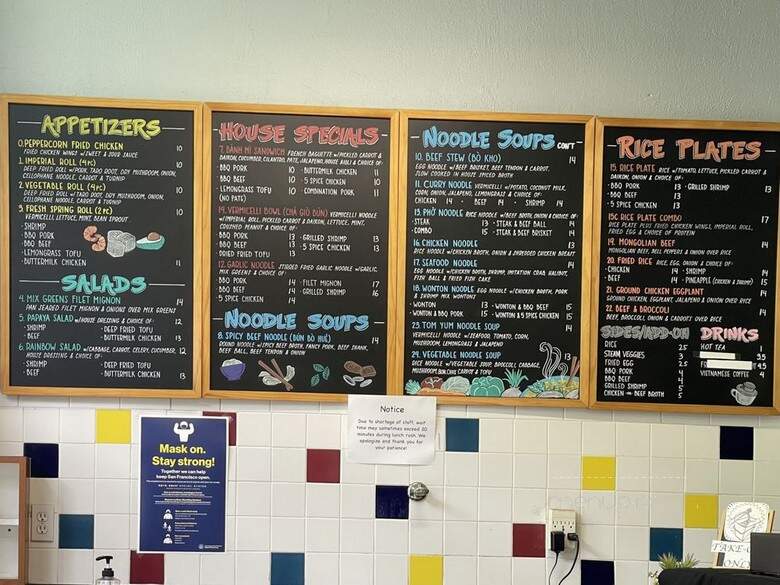 APPETIZERS
0. PEPPERCORN FRIED CHICKEN 10
FRIED CHICKEN WINGS W/SWEET & SOUR SAUCE
1. IMPERIAL ROLL (4PC) 10
DEEP FRIED ROLL W/PORK, TARO ROOT, DRY MUSHROOM, ONION,
CELLOPHANE NOODLE, CARROT & TURNIP
2. VEGETABLE ROLL (4PC) 10
DEEP FRIED ROLL W/TARO ROOT, DRY MUSHROOM, ONION,
CELLOPHANE NOODLE, CARROT & TURNIP
3. FRESH SPRING ROLL (2PC) 10
VERMICELLI, LETTUCE, MINT, BEAN SPROUT
-SHRIMP
-BBQ PORK
-BBQ BEEF
-LEMONGRASS TOFU
-BUTTERMILK CHICKEN 11
SALADS
4. MIX GREENS FILET MIGNON 14
PAN SEARED FILET MIGNON & ONIONS OVER MIX GREENS
5. PAPAYA SALAD W/HOUSE DRESSING & CHOICE OF: 12
-SHRIMP -DEEP FRIED TOFU
-BEEF -BUTTERMILK CHICKEN 13
6. RAINBOW SALAD W/CABBAGE, CARROT, CELERY, CUCUMBER, 12
HOUSE DRESSING & CHOICE OF:
-SHRIMP -DEEP FRIED TOFU
-BEEF -BUTTERMILK CHICKEN 13
HOUSE SPECIALS
7. BÁNH MÌ SANDWICH FRENCH BAGUETTE W/PICKLED CARROT &
DAIKON, CUCUMBER, CILANTRO, PATE, JALAPENO, HOUSE AIOLI & CHOICE OF:
-BBQ PORK 10 -BUTTERMILK CHICKEN 11
-BBQ BEEF 10 -5 SPICE CHICKEN 10
-LEMONGRASS TOFU 10 -COMBINATION PORK 11
(NO PATE)
14. VERMICELLI BOWL (CHẢ GIÒ BÚN) VERMICELLI NOODLE
W/IMPERIAL ROLL, PICKLED CARROT & DAIKON, LETTUCE, MINT,
CRUSHED PEANUT & CHOICE OF:
-BBQ PORK 13 -GRILLED SHRIMP 13
-BBQ BEEF 13 -5 SPICE CHICKEN 13
-DRIED FRIED TOFU 13
12. GARLIC NOODLE STIRRED FRIED GARLIC NOODLE W/GARLIC,
MIX GREENS & CHOICE OF:
-BBQ PORK 14 -FILET MIGNON 17
-BBQ BEEF 14 -GRILLED SHRIMP 16
-5 SPICE CHICKEN 14
NOODLE SOUPS
8. SPICY BEEF NOODLE (BÚN BÒ HUẾ) 14
ROUND NOODLE W/SPICY BEEF BROTH, FANCY PORK, BEEF SHANK,
BEEF BALL, BEEF TENDON & ONION
NOODLE SOUPS CON'T
10. BEEF STEW (BÒ KHO) 14
EGG NOODLE W/BEEF BRISKET, BEEF TENDON & CARROT,
SLOW COOKED IN HOUSE SPICED BROTH
11. CURRY NOODLE VERMICELLI W/POTATO, COCONUT MILK,
CORN, ONION, JALAPENO, LEMONGRASS & CHOICE OF:
-CHICKEN 14 -BEEF 14 -SHRIMP 14
13. PHỞ NOODLE RICE NOODLE W/BEEF BROTH, ONION & CHOICE OF:
-STEAK 13 -STEAK & BEEF BALL 14
-COMBO 15 -STEAK & BEEF BRISKET 14
16. CHICKEN NOODLE 13
RICE NOODLE W/CHICKEN BROTH, ONION & SHREDDED CHICKEN BREAST
17. SEAFOOD NOODLE 14
EGG NOODLE W/CHICKEN BROTH, SHRIMP, IMITATION CRAB, HALIBUT,
FISH BALL & FRIED FISH CAKE
18. WONTON NOODLE EGG NOODLE W/CHICKEN BROTH, PORK
& SHRIMP MIX WONTONS
-WONTON 13 -WONTON & BBQ BEEF 15
-WONTON & BBQ PORK 15 -WONTON & 5 SPICE CHICKEN 15
23. TOM YUM NOODLE SOUP 14
VERMICELLI NOODLE W/SEAFOOD, TOMATO, CORN,
MUSHROOM, LEMONGRASS & JALAPENO
24. VEGETABLE NOODLE SOUP 13
RICE NOODLE W/VEGETABLE SOUP, BROCCOLI, CABBAGE,
MUSHROOM, BOK CHOY, CARROT & TOFU
RICE PLATES
15. RICE PLATE RICE W/TOMATO, LETTUCE, PICKLED CARROT &
DAIKON, ONION & CHOICE OF:
-BBQ PORK 13 -GRILLED SHRIMP 13
-BBQ BEEF 13
-5 SPICE CHICKEN 13
15C RICE PLATE COMBO 17
RICE PLATE PLUS FRIED CHICKEN WINGS, IMPERIAL ROLL,
FRIED EGG & CHOICE OF PROTEIN
19. MONGOLIAN BEEF 14
MONGOLIAN BEEF, BELL PEPPERS & ONION OVER RICE
20. FRIED RICE RICE, EGG, ONION & CHOICE OF:
-CHICKEN 14 -SHRIMP 14
-BEEF 14 -PINEAPPLE (CHICKEN & SHRIMP) 15
21. GROUND CHICKEN EGGPLANT 14
GROUND CHICKEN, EGGPLANT, JALAPENO & ONION OVER RICE
22. BEEF & BROCCOLI 14
BEEF, BROCCOLI, ONION & CARROTS OVER RICE
SIDES/ADD-ON
RICE 2.5
STEAM VEGGIES 3
FRIED EGG 2.5
BBQ PORK 4
BBQ BEEF 4
GRILLED SHRIMP 5
CHICKEN OR BEEF BROTH 5
DRINKS
HOT TEA 1
3.5
4.5
VIETNAMESE COFFEE 4
Notice
Due to shortage of staff, wait
time may sometimes exceed 20
minutes during lunch rush. We
apologize and thank you for
your patience!
Mask on.
Stay strong!
Together we can help
keep San Francisco open.
TAKE-OUT
ONLY